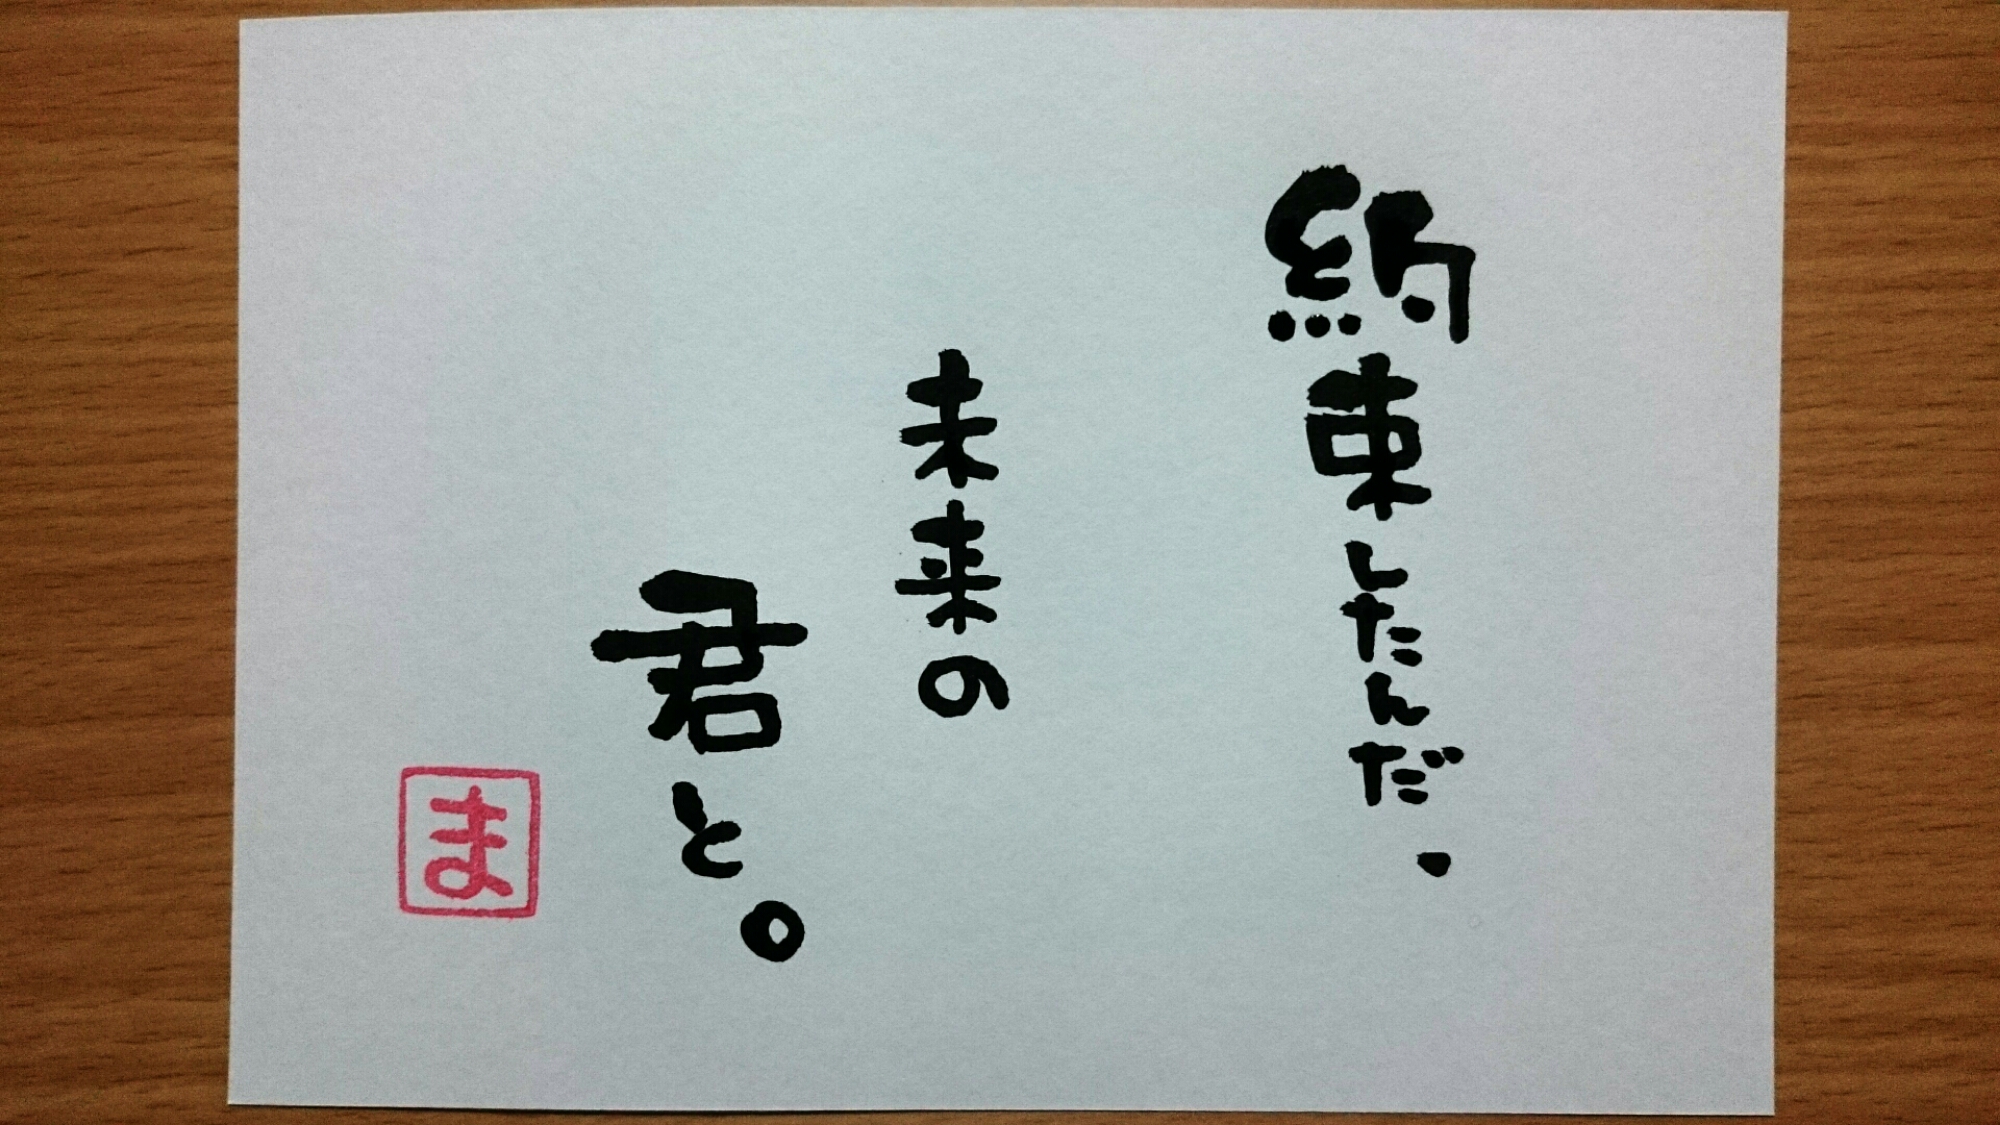 約束したんだ、
未来の
君と。
ま